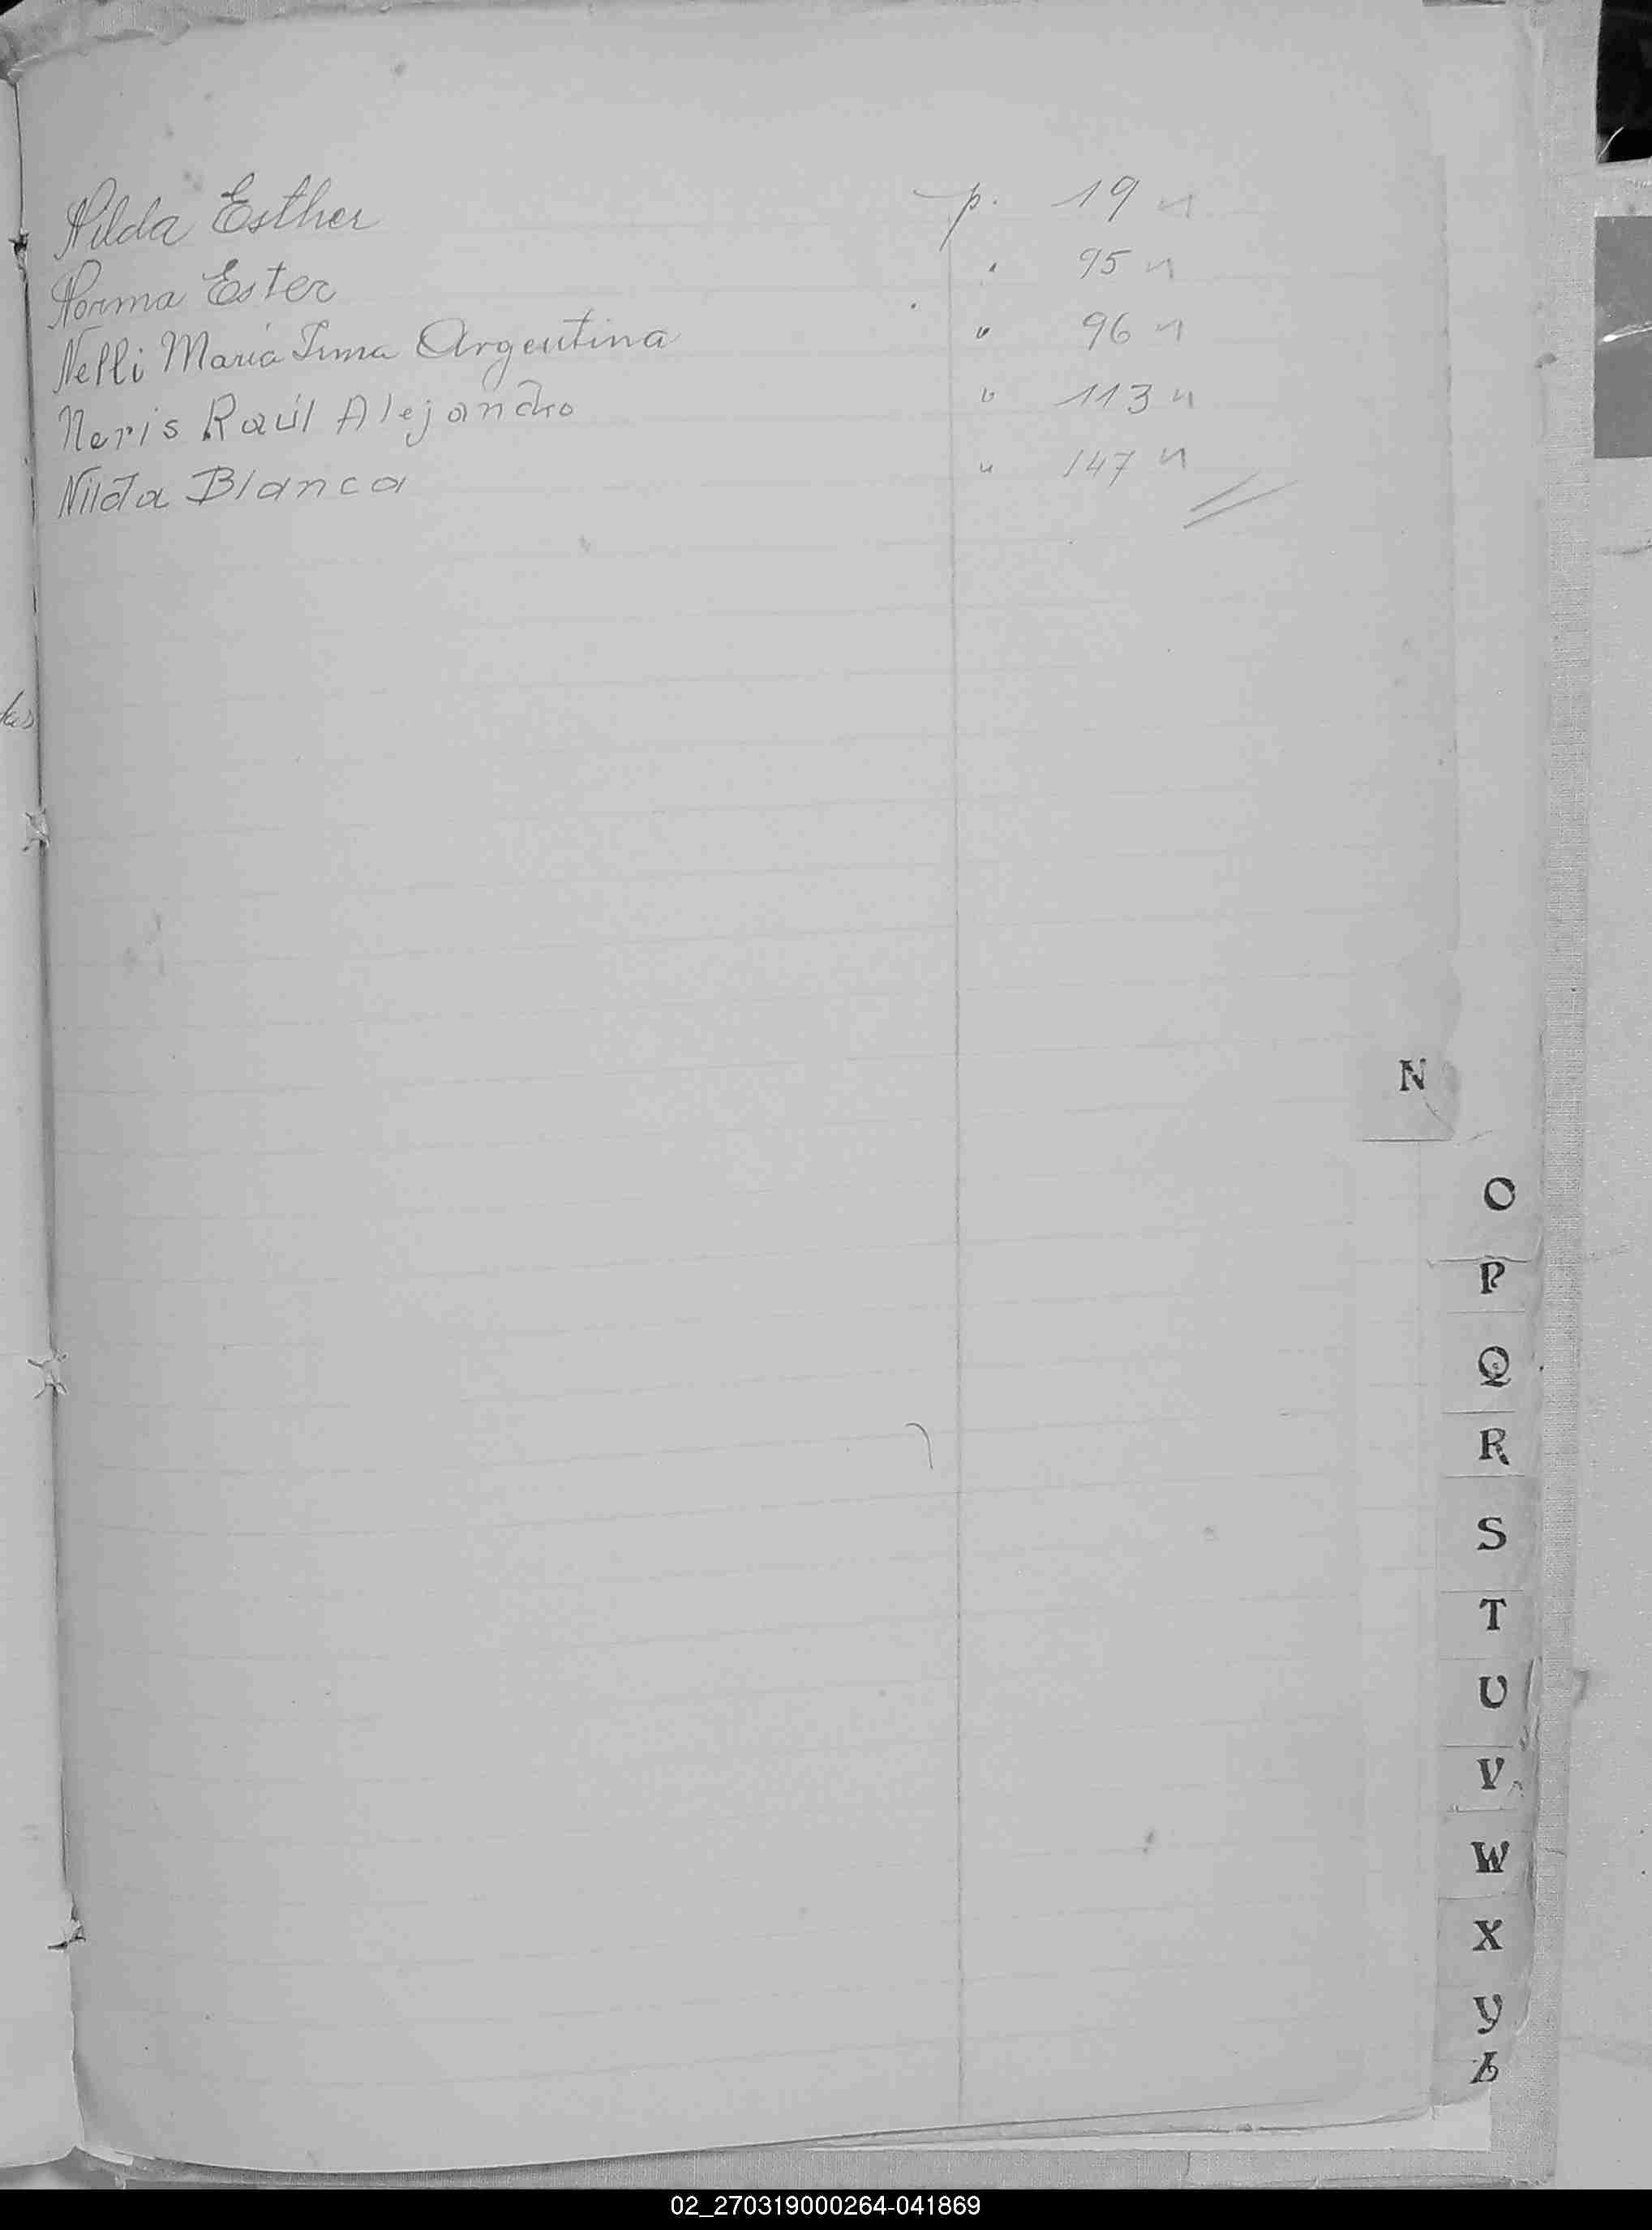 Nilda Esther p. 19 n
Norma Ester " 95 n
Nelli María Irma Argentina " 96 n
Neris Raúl Alejandro " 113 n
Nilda Blanca " 147 n
N
O
P
Q
R
S
T
U
V
W
X
Y
Z
02_270319000264-041869